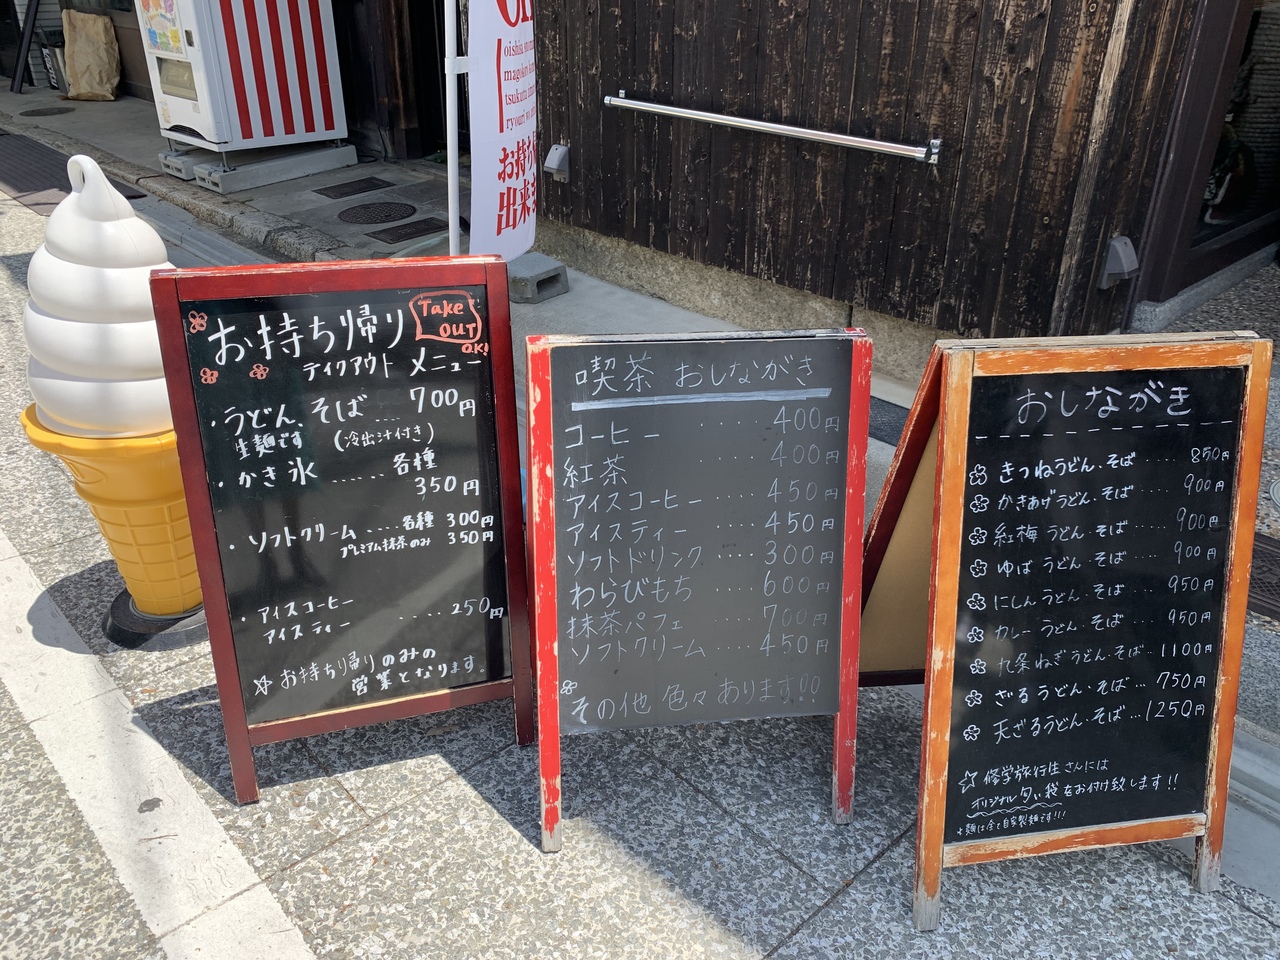 oishisa
magokoro
tsukuru
ryouri
お持ち
出来ま
Take
OUT
O.K!
お持ち帰り
テイクアウト メニュー
・うどん、そば ‥‥ 700円
生麺です (冷出汁付き)
・かき氷 ‥‥‥ 各種
350円
・ソフトクリーム ‥‥ 各種 300円
プレミアム抹茶のみ 350円
・アイスコーヒー
アイスティー ‥‥ 250円
お持ち帰りのみの
営業となります。
喫茶 おしながき
コーヒー ‥‥ 400円
紅茶 400円
アイスコーヒー ‥‥ 450円
アイスティー ‥‥ 450円
ソフトドリンク ‥‥ 300円
わらびもち ‥‥ 600円
抹茶パフェ ‥‥ 700円
ソフトクリーム ‥‥ 450円
その他 色々あります!!
おしながき
きつねうどん・そば ‥‥ 850円
かきあげうどん・そば ‥‥ 900円
紅梅うどん・そば ‥‥ 900円
ゆばうどん・そば ‥‥ 900円
にしんうどん・そば ‥‥ 950円
カレーうどん・そば ‥‥ 950円
九条ねぎうどん・そば ‥ 1100円
ざるうどん・そば ‥ 750円
天ざるうどん・そば ‥ 1250円
☆修学旅行生さんには
オリジナル匂い袋をお付け致します!!
麺は全て自家製麺です!!!